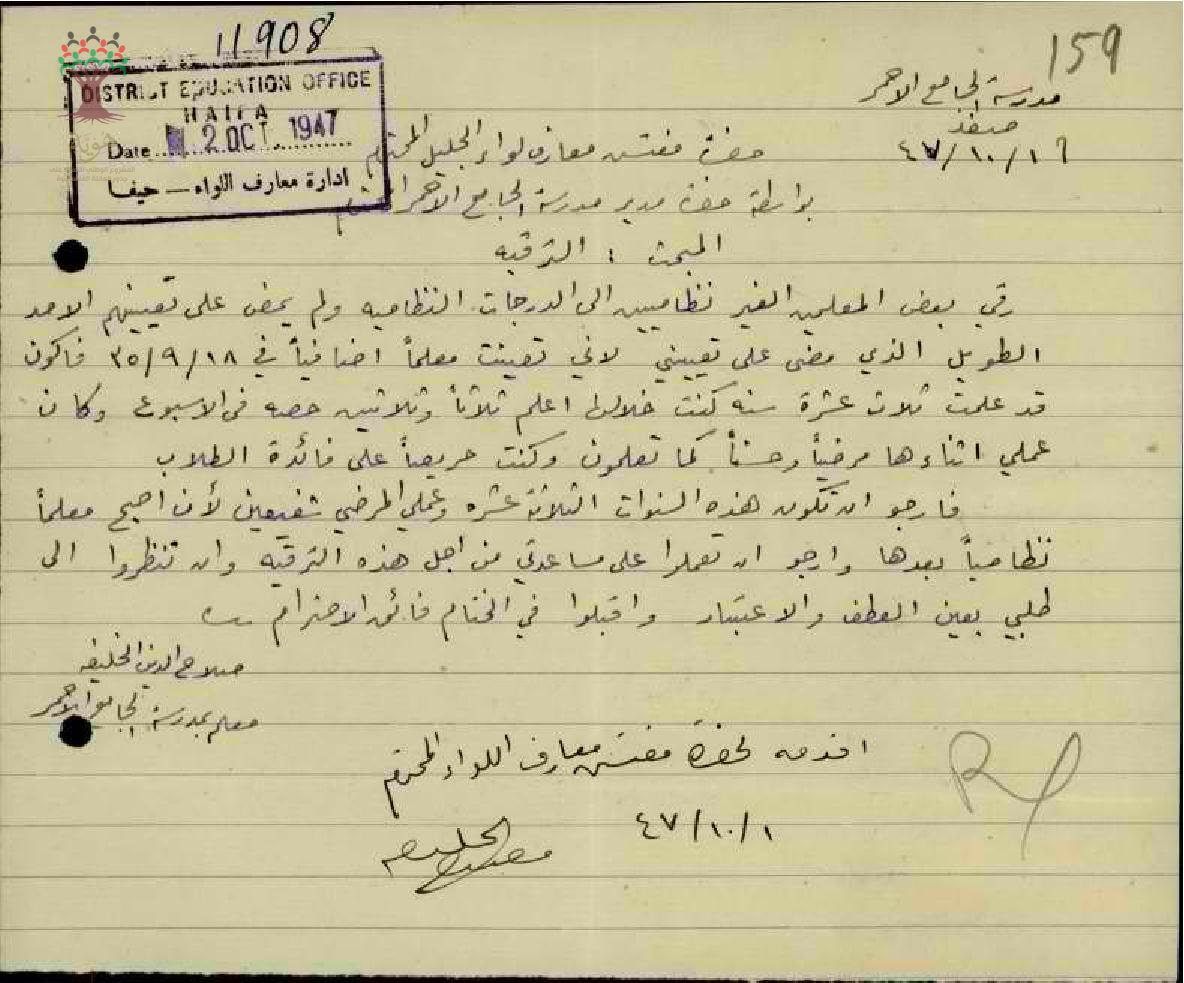 159
11908
DISTRICT EDUCATION OFFICE
HAIFA
Date 2 OCT 1947
ادارة معارف اللواء — حيفا
مدرسة الجامع الاحمر
صفد
٤٧/١٠/١
حضرة مفتش معارف لواء الجليل المحترم
بواسطة حضرة مدير مدرسة الجامع الاحمر المحترم
المبحث : الترقيه
رقي بعض المعلمين الغير نظاميين الى الدرجات النظاميه ولم يمض على تعيينهم الامد
الطويل الذي مضى على تعييني لاني تعينت معلماً اضافياً في ٣٥/٩/١٨ فاكون
قد علمت ثلاث عشرة سنه كنت خلالها اعلم ثلاثاً وثلاثين حصه في الاسبوع وكان
عملي اثناءها مرضياً وحسناً كما تعلمون وكنت حريصاً على فائدة الطلاب
فارجو ان تكون هذه السنوات الثلاثة عشره وعملي المرضي شفيعين لأن اصبح معلماً
نظامياً بعدها وارجو ان تعملوا على مساعدتي من اجل هذه الترقيه وان تنظروا الى
طلبي بعين العطف والاعتبار واقبلوا في الختام فائق الاحترام
صلاح الدين الخليفه
معلم بمدرسة الجامع الاحمر
اقدمه لحضرة مفتش معارف اللواء المحترم
٤٧/١٠/١